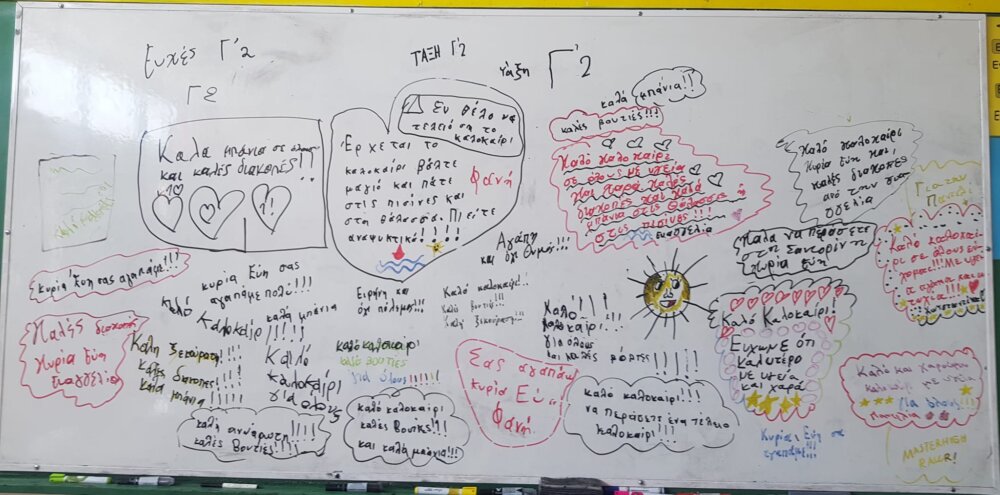 Ευχές Γ'2
ΤΑΞΗ Γ'2
τάξη
Γ'2
Γ2
Καλά μπάνια σε όλους
και καλές διακοπές!!
Έρχεται το
καλοκαίρι βάλτε
μαγιό και πάτε
στις πισίνες και
στη θάλασσα. Πιείτε
αναψυκτικό!!!!
Φανή
θέλο να
τελειόση το
καλοκαίρι
καλά μπάνια!!
καλές βουτιές!!!
Καλό καλοκαίρι
σε όλους με υγεία
και χαρά καλές
διακοπές και καλά
μπάνια στις θάλασσες ή
στις πισίνες!!!
ευαγγελία
Καλό καλοκαίρι
κυρία εύη και
καλές διακοπές
από την
Για την
Καλό καλοκαί-
ρι σε όλους
Καλά να περάσετε
στη Σαντορίνη
κυρία εύη
Αγάπη
και όχι θυμοί!!!
κυρία Εύη σας αγαπάμε!!!
κυρία Εύη σας
αγαπάμε πολύ!!!
Ειρήνη και
όχι πόλεμοι!!!
Καλό καλοκαίρι!
Καλές βουτιές!!!
Καλή ξεκούραση!!!
Καλό
καλοκαίρι!!!!
καλά μπάνια
Καλό!!!!
καλοκαίρι
για όλους
και καλές βόλτες!!!!
Καλές διακοπές
κυρία εύη
ευαγγελία
Καλη ξεκούραση!!!!
καλές διακοπές!!!
καλά μπάνια!!!
Καλό
καλοκαίρι
για όλους
καλό καλοκαίρι
καλές βουτιές
για όλους!!!!!!
Σας αγαπάω
κυρία Εύη
Φανή
Καλό Καλοκαίρι!
Εύχομε ότι
καλυτέρο
με υγεία
και χαρά
Καλό και χαρούμενο
καλοκαίρι με υγεία
Για όλους!!!
καλή ανάρωτη!!!!
καλές βουτιές!!!!
καλό καλοκαίρι
καλές βουτιές!!!
και καλά μπάνια!!!
καλό καλοκαίρι!!!
να περάσετε ένα τέλειο
καλοκαίρι!!!!
Κυρία Εύη σε
αγαπάμε!!!
MASTERHIGH